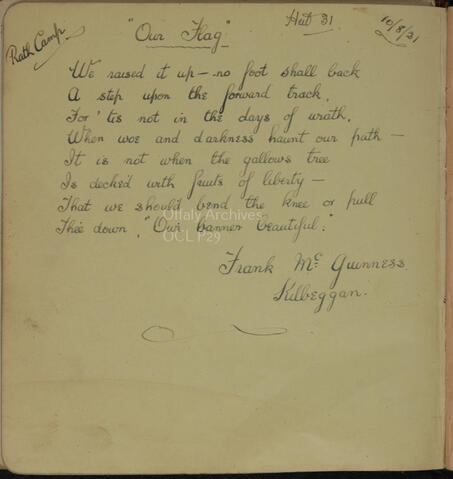 Rath Camp.
"Our Flag"
Hut 31
10/8/21
We raised it up – no foot shall back
A step upon the forward track,
For 'tis not in the days of wrath,
When woe and darkness haunt our path –
It is not when the gallows tree
Is decked with fruits of liberty –
That we should bend the knee or pull
Thee down, "Our banner beautiful."
Offaly Archives
OCL P29
Frank McGuinness
Kilbeggan.